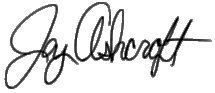 Jay Ashcroft